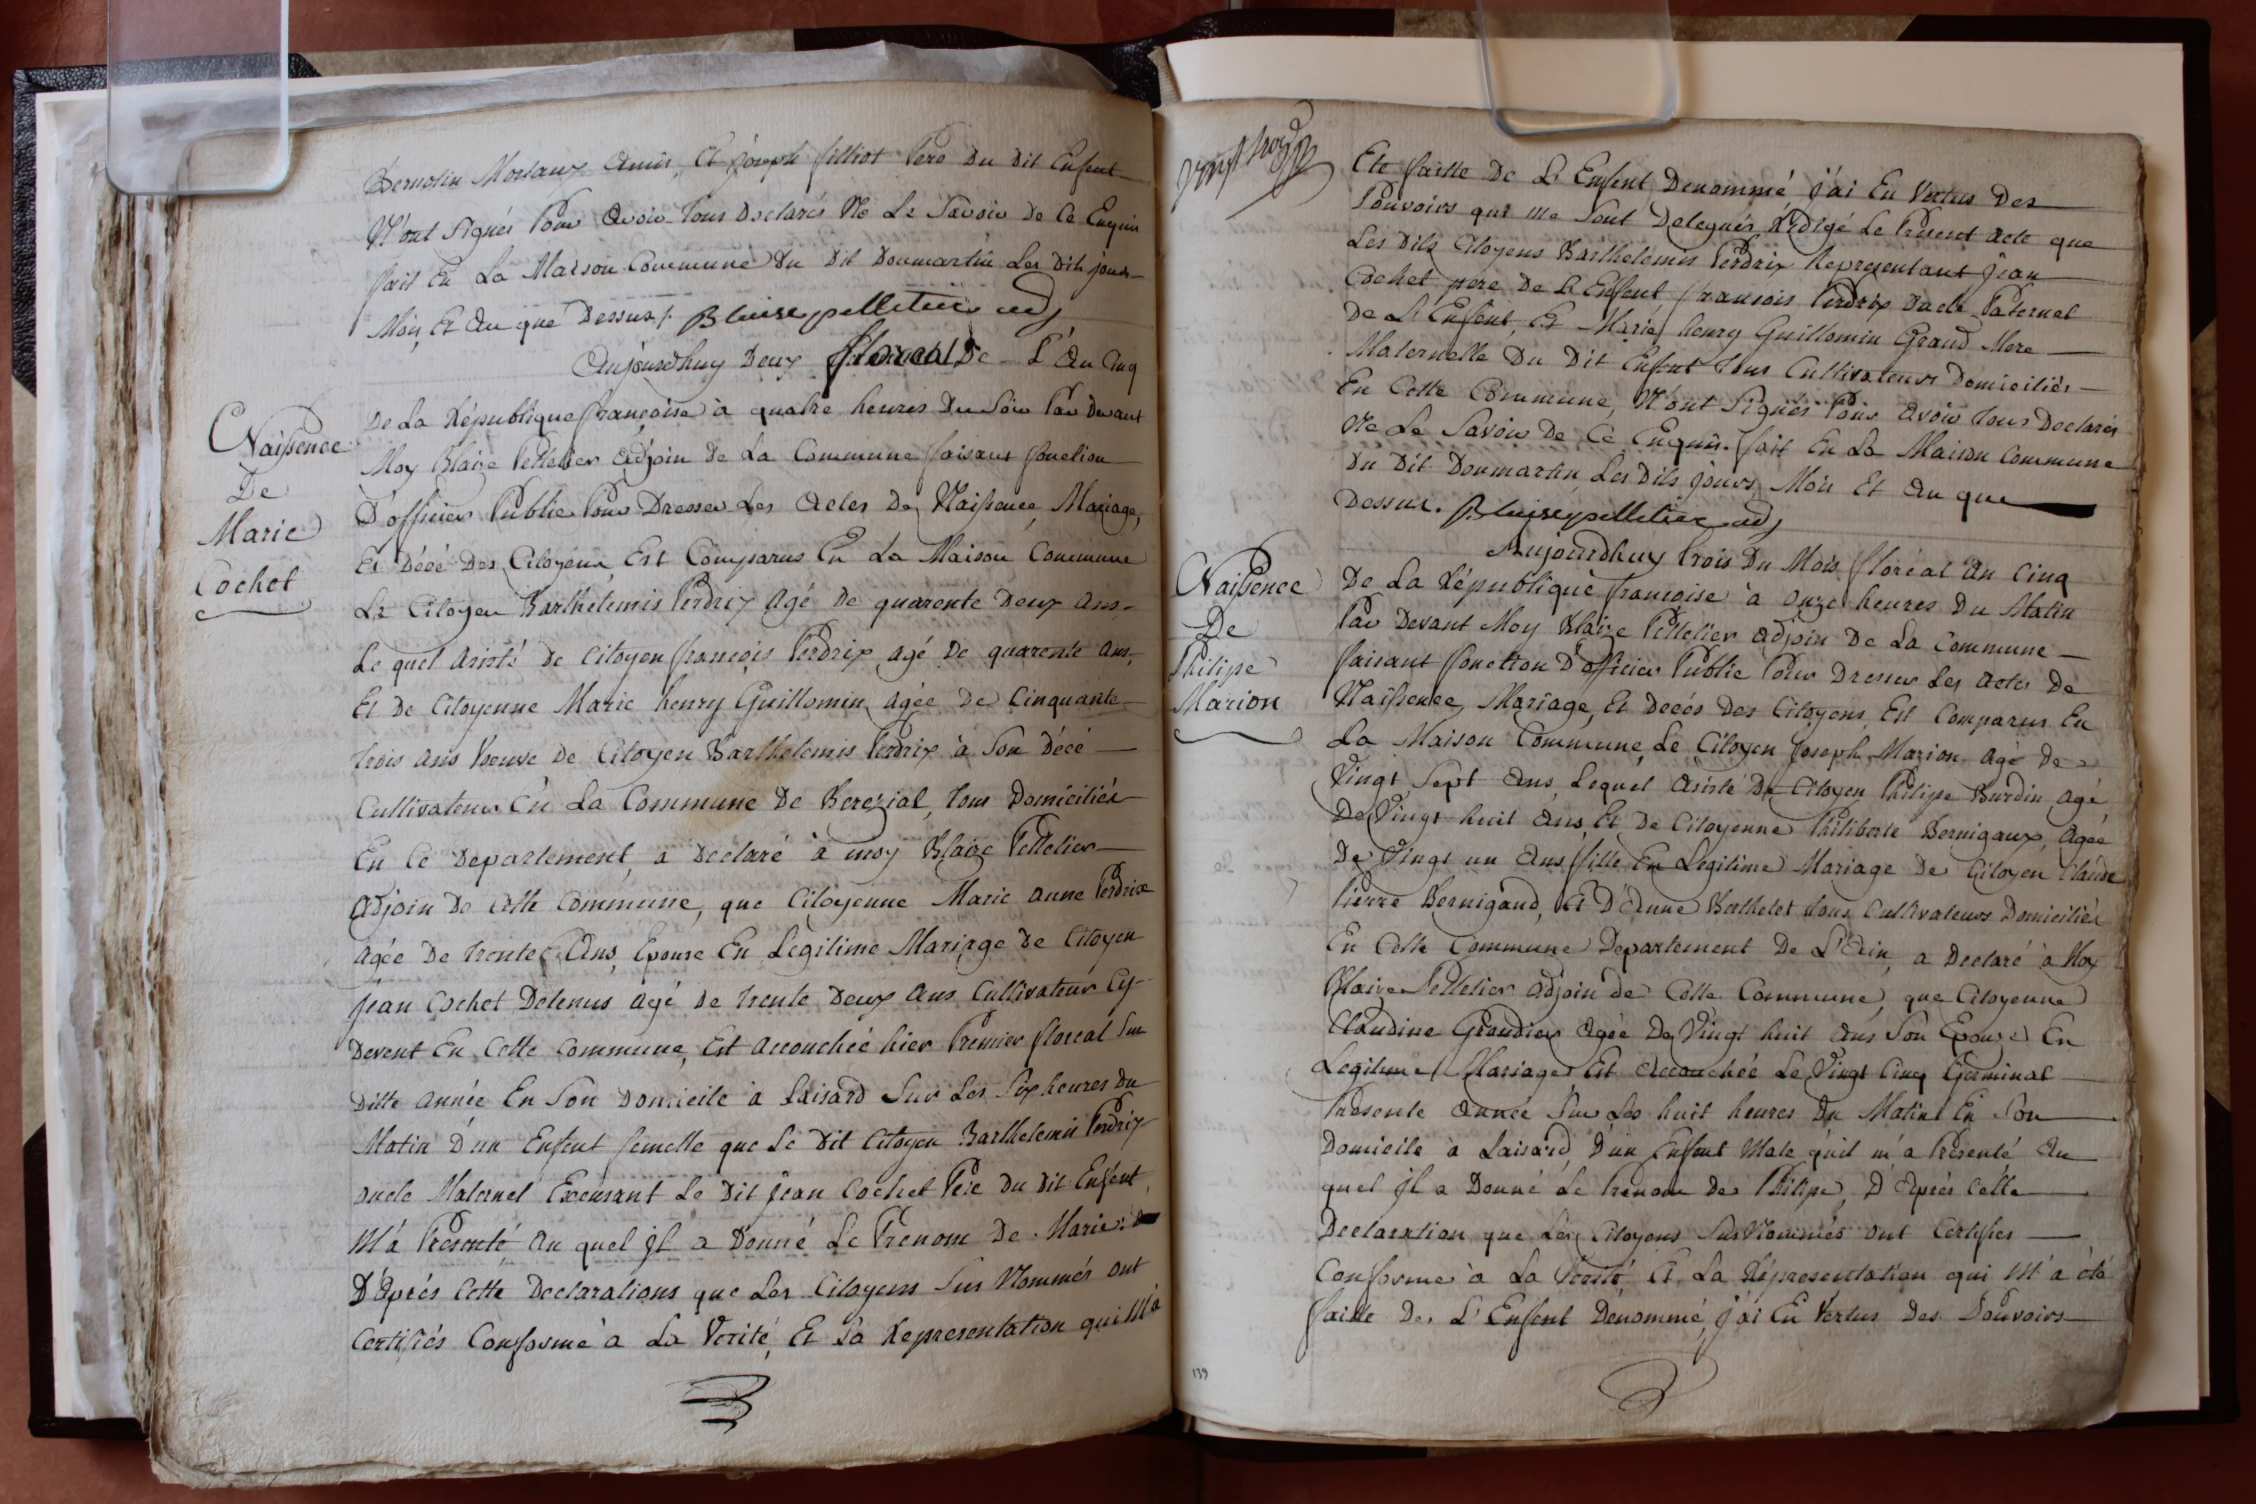 Bernolin Morsaux amis, et joseph filliot Pere du dit Enfent
N'ont signés Pour avoir tous declarés Ne Le Savoir de ce Enquis
fait En La Maison Commune du dit Dommartin Les dits jours
Mois Et an que Dessus /. Blaise pelletier adj
Aujourdhuy Deux floreal De L'an Cinq
De La République françoise à quatre heures du Soir Par devant
Moy Blaize Pelletier adjoin de La Commune faisant fonction
D'officier Public Pour Dresser Les actes de Naissence, Mariage,
Et Décé des Citoyens Est Comparus En La Maison Commune
Le Citoyen Barthelemis Perdrix Agé de quarente Deux ans
Le quel Aristé de Citoyen françois Perdrix agé de quarente ans,
Et de Citoyenne Marie henry Guillomin agée de Cinquante
trois ans Veuve de Citoyen Barthelemis Perdrix à Son Décé
Cultivateur En La Commune de Berezial, tous Domiciliés
En Ce Departement, a declaré à moy Blaize Pelletier
Adjoin de Cette Commune, que Citoyenne Marie Anne Perdrix
Agée de trente Ans, Epouse En Legitime Mariage de Citoyen
Jean Cochet Detenus agé de trente Deux ans Cultivateur Cy-
Devent En Cette Commune, Est accouchée hier Premier floreal Sus
Ditte année En Son Domicile à Laisard Sur Les Six heures du
Matin D'un Enfent femelle que Le Dit Citoyen Barthelemis Perdrix
Oncle Maternel Excusant Le Dit Jean Cochet Pere du dit Enfent,
M'à Presenté Au quel Jl a Donné Le Prenom De Marie.
D'Après Cette Declarations que Les Citoyens Sus Nommés ont
Certifiés Conforme à La Verité, Et La Representation qui M'à
Naissence
De
Marie
Cochet
Eté faitte De L'Enfent Denommé j'ai En Vertus Des
Pouvoirs qui me Sont Delegués Rédigé Le Présent Acte que
Les Dits Citoyens Barthelemis Perdrix Representant Jean
Cochet pere De L'Enfent françois Perdrix Oncle Paternel
De L'Enfent, Et Marie henry Guillomin Grand Mere
Maternelle Du Dit Enfent tous Cultivateurs Domiciliés
En Cette Commune, N'ont Signés Pour avoir tous Declarés
Ne Le Savoir De Ce Enquis. fait En La Maison Commune
Du Dit Dommartin Les Dits jours, Mois Et An que
Dessus. Blaise pelletier adj
Aujourdhuy trois Du Mois floréal An Cinq
De La République françoise à onze heures Du Matin
Par Devant Moy Blaize Pelletier adjoin De La Commune
faisant fonction D'officier Public Pour Dresser Les actes De
Naissence, Mariage, Et Decés Des Citoyens, Est Comparus En
La Maison Commune, Le Citoyen Joseph Marion Agé De
Vingt Sept Ans, Lequel Aristé De Citoyen Philipe Burdin Agé
De Vingt huit Ans, Et De Citoyenne Philiberte Bernigaux, Agée
De Vingt un Ans fille En Legitime Mariage De Citoyen Claude
Pierre Bernigaud, Et D'Anne Berthelet tous Cultivateurs Domiciliés
En Cette Commune Departement De L'Ain, a Declaré à Moy
Blaize Pelletier adjoin De Cette Commune, que Citoyenne
Claudine Grandier Agée De Vingt huit Ans Son Epouse En
Legitime Mariage Est Accouchée Le Vingt Cinq Germinal
Presente Année Sur Les huit heures Du Matin En Son
Domicile à Laisard, D'un Enfent Male qu'il m'a Presenté Au
quel Jl a Donné Le Prenom De Philipe, D'Après Cette
Declaration que Les Citoyens Sus Nommés ont Certifiés
Conforme à La Verité Et La Répresentation qui M'a été
faitte De L'Enfent Dénommé, j'ai En Vertus Des Pouvoirs
Naissence
De
Philipe
Marion
139